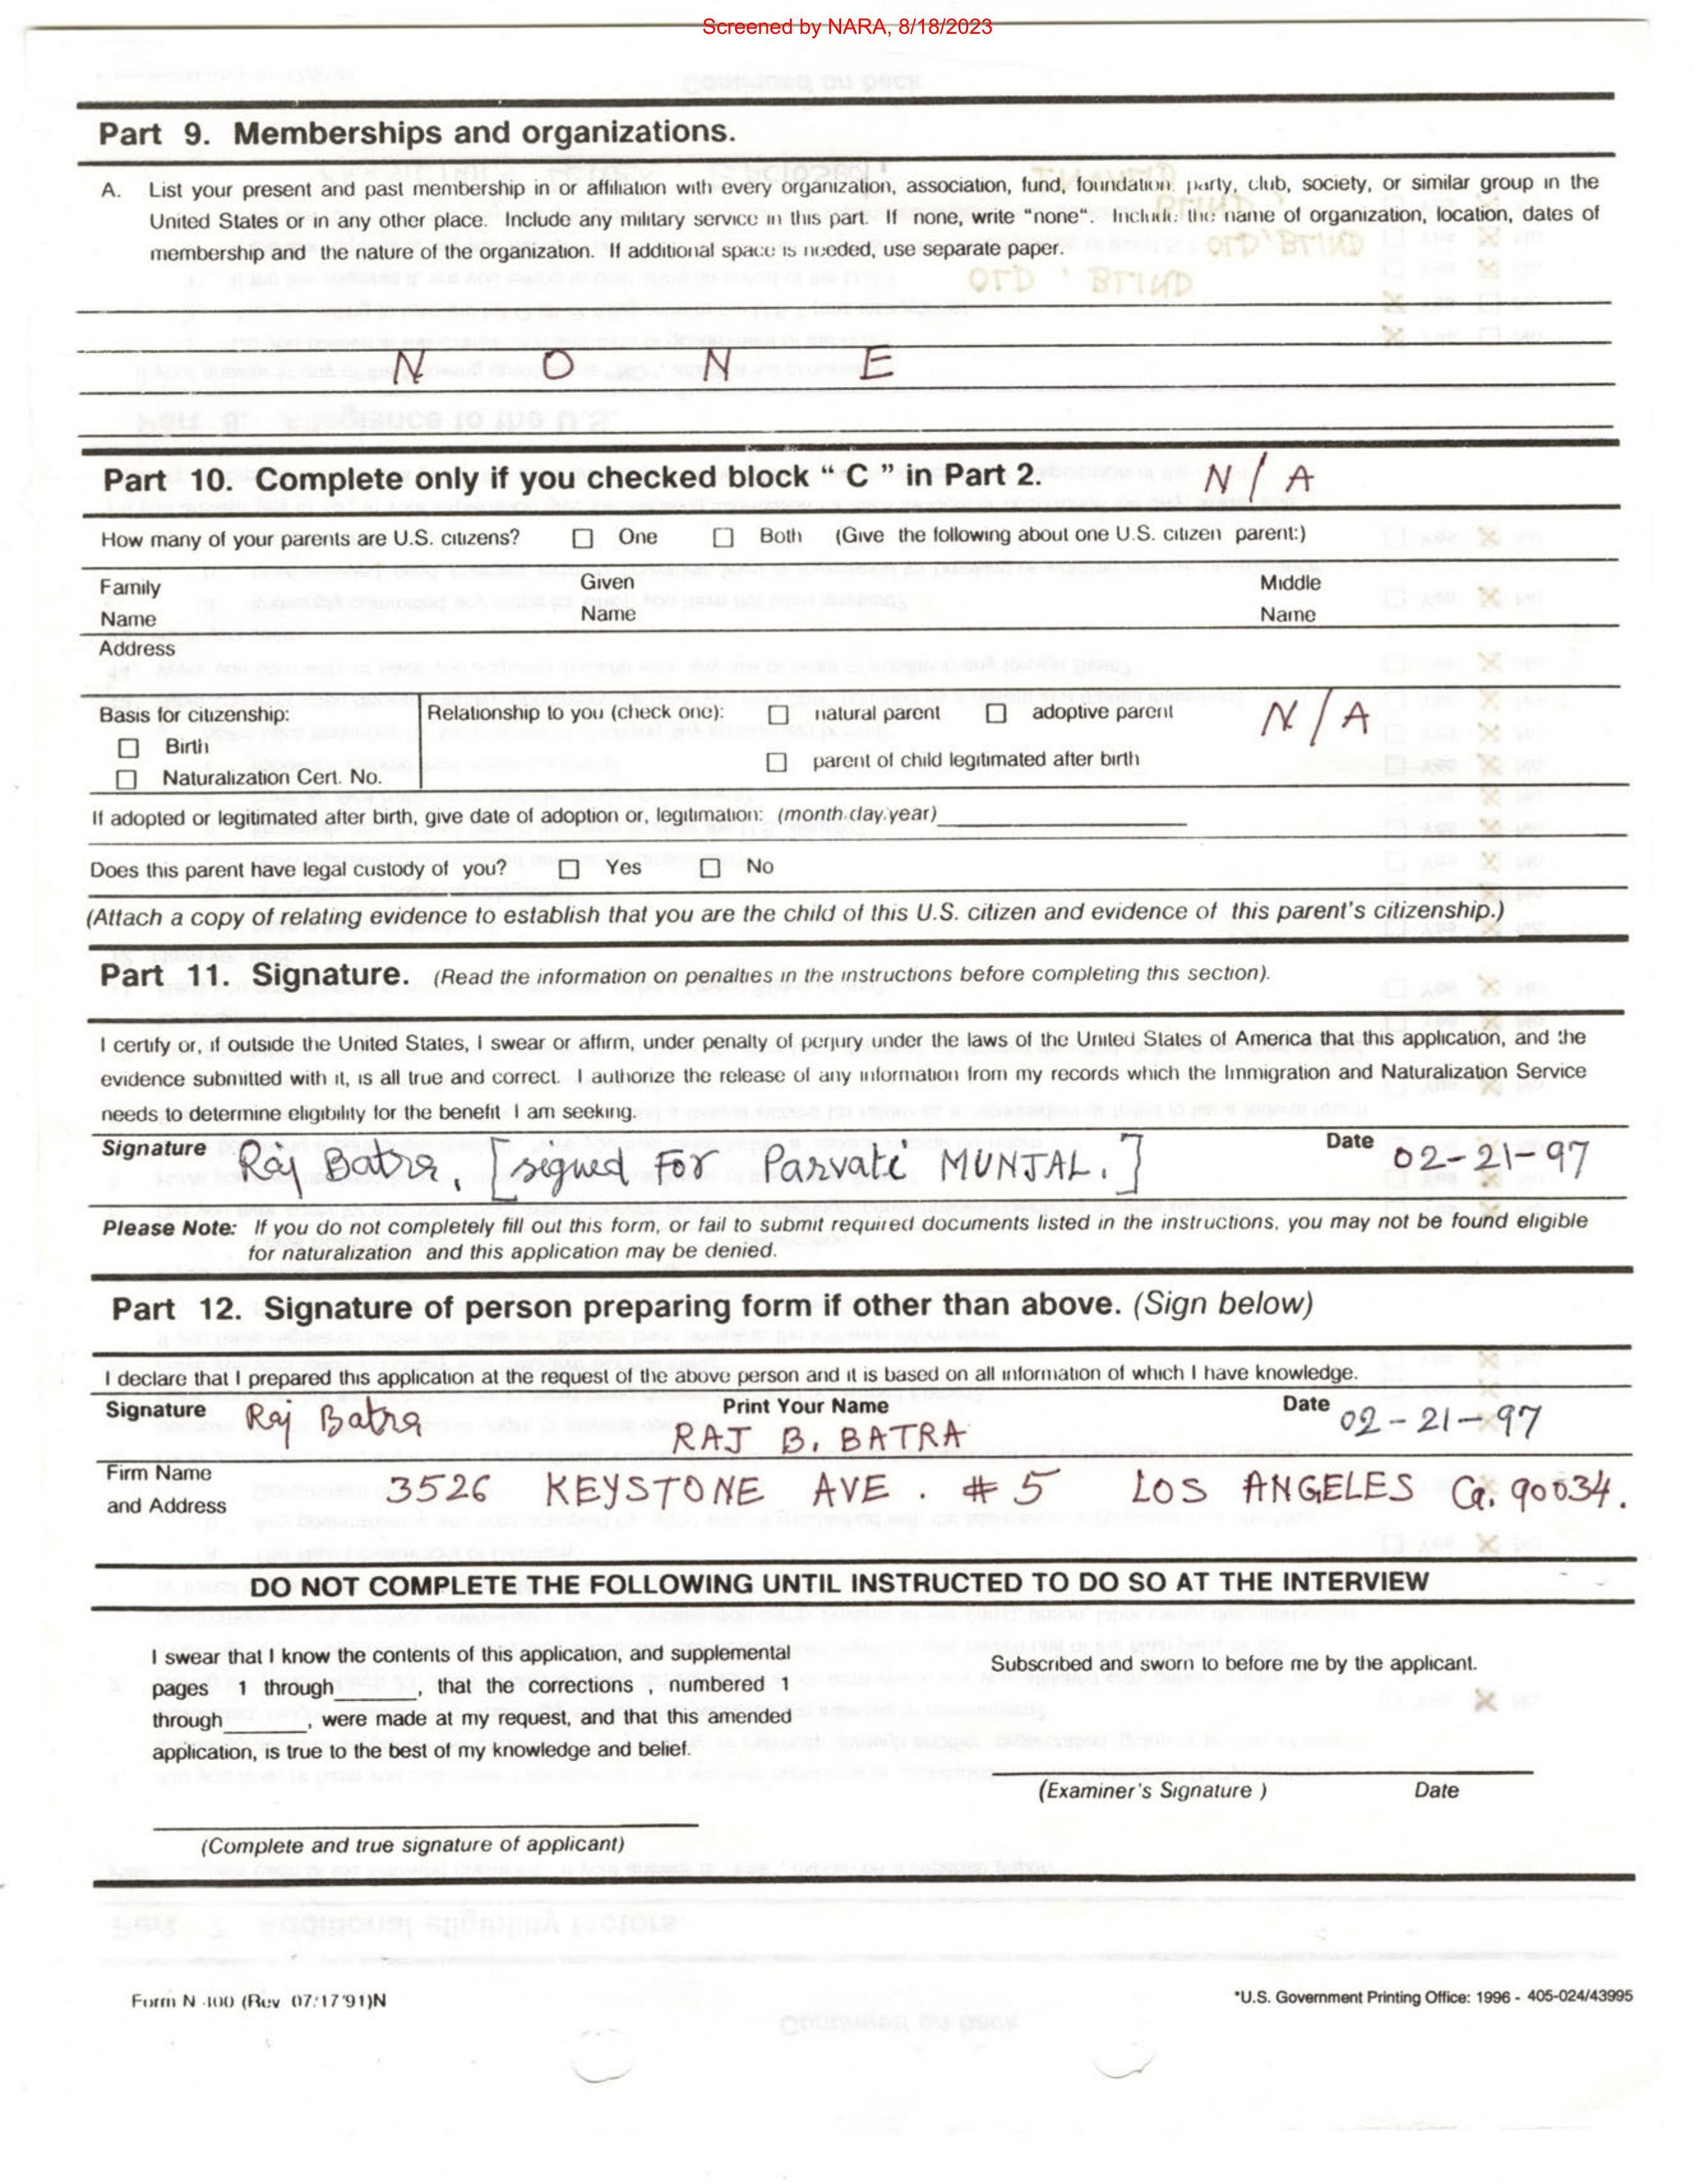 Screened by NARA, 8/18/2023
Part 9. Memberships and organizations.
A. List your present and past membership in or affiliation with every organization, association, fund, foundation, party, club, society, or similar group in the
United States or in any other place. Include any military service in this part. If none, write "none". Include the name of organization, location, dates of
membership and the nature of the organization. If additional space is needed, use separate paper.
N O N E
Part 10. Complete only if you checked block " C " in Part 2. N / A
How many of your parents are U.S. citizens? ☐ One ☐ Both (Give the following about one U.S. citizen parent:)
Family Given Middle
Name Name Name
Address
Basis for citizenship: Relationship to you (check one): ☐ natural parent ☐ adoptive parent N / A
☐ Birth
☐ parent of child legitimated after birth
☐ Naturalization Cert. No.
If adopted or legitimated after birth, give date of adoption or, legitimation: (month/day/year)
Does this parent have legal custody of you? ☐ Yes ☐ No
(Attach a copy of relating evidence to establish that you are the child of this U.S. citizen and evidence of this parent's citizenship.)
Part 11. Signature. (Read the information on penalties in the instructions before completing this section).
I certify or, if outside the United States, I swear or affirm, under penalty of perjury under the laws of the United States of America that this application, and the
evidence submitted with it, is all true and correct. I authorize the release of any information from my records which the Immigration and Naturalization Service
needs to determine eligibility for the benefit I am seeking.
Signature Raj Batra, [signed FOR Parvati MUNJAL.] Date 02-21-97
Please Note: If you do not completely fill out this form, or fail to submit required documents listed in the instructions, you may not be found eligible
for naturalization and this application may be denied.
Part 12. Signature of person preparing form if other than above. (Sign below)
I declare that I prepared this application at the request of the above person and it is based on all information of which I have knowledge.
Signature Raj Batra Print Your Name RAJ B. BATRA Date 02-21-97
Firm Name
and Address 3526 KEYSTONE AVE. #5 LOS ANGELES Ca. 90034.
DO NOT COMPLETE THE FOLLOWING UNTIL INSTRUCTED TO DO SO AT THE INTERVIEW
I swear that I know the contents of this application, and supplemental
pages 1 through______, that the corrections , numbered 1
through______, were made at my request, and that this amended
application, is true to the best of my knowledge and belief.
Subscribed and sworn to before me by the applicant.
(Examiner's Signature ) Date
(Complete and true signature of applicant)
Form N-400 (Rev 07/17/91)N
*U.S. Government Printing Office: 1996 - 405-024/43995